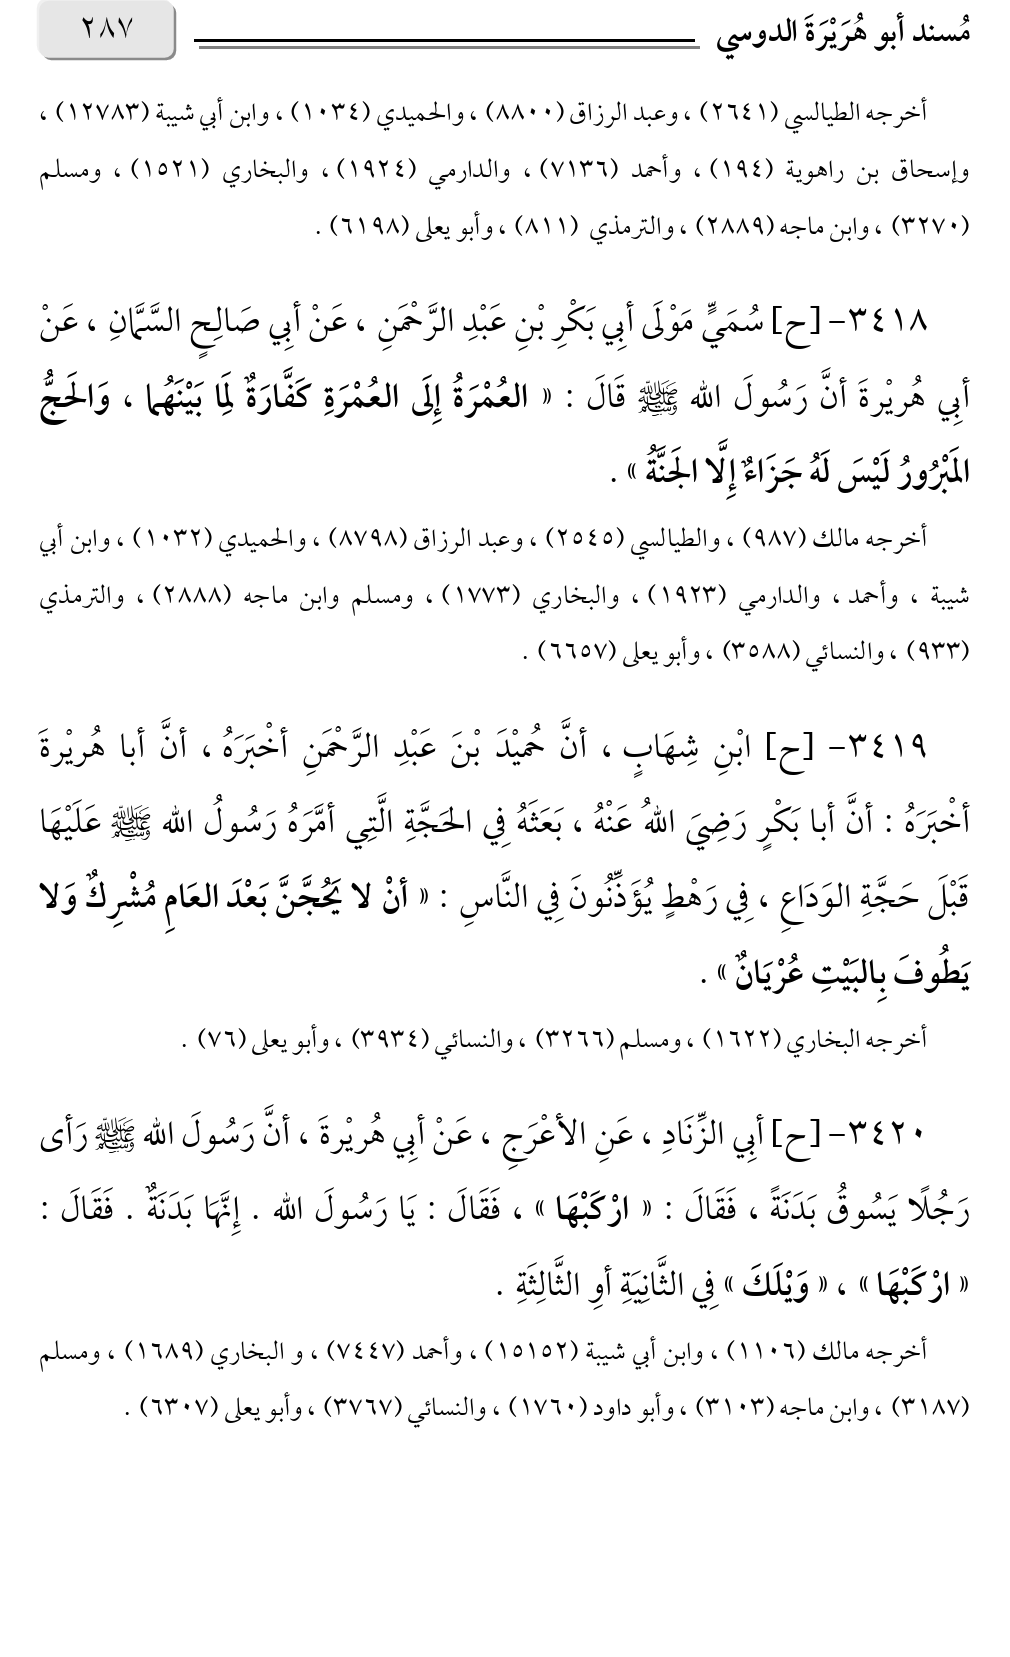 مُسند أبو هُرَيْرَةَ الدوسي
٢٨٧
أخرجه الطيالسي (٢٦٤١) ، وعبد الرزاق (٨٨٠٠) ، والحميدي (١٠٣٤) ، وابن أبي شيبة (١٢٧٨٣) ،
وإسحاق بن راهوية (١٩٤) ، وأحمد (٧١٣٦) ، والدارمي (١٩٢٤) ، والبخاري (١٥٢١) ، ومسلم
(٣٢٧٠) ، وابن ماجه (٢٨٨٩) ، والترمذي (٨١١) ، وأبو يعلى (٦١٩٨) .
٣٤١٨- [ح] سُمَيٍّ مَوْلَى أبِي بَكْرِ بْنِ عَبْدِ الرَّحْمَنِ ، عَنْ أبِي صَالِحٍ السَّمَّانِ ، عَنْ
أبِي هُريْرةَ أنَّ رَسُولَ الله ﷺ قَالَ : « العُمْرَةُ إِلَى العُمْرَةِ كَفَّارَةٌ لِمَا بَيْنَهُما ، وَالحَجُّ
المَبْرُورُ لَيْسَ لَهُ جَزَاءٌ إِلَّا الجَنَّةُ » .
أخرجه مالك (٩٨٧) ، والطيالسي (٢٥٤٥) ، وعبد الرزاق (٨٧٩٨) ، والحميدي (١٠٣٢) ، وابن أبي
شيبة ، وأحمد ، والدارمي (١٩٢٣) ، والبخاري (١٧٧٣) ، ومسلم وابن ماجه (٢٨٨٨) ، والترمذي
(٩٣٣) ، والنسائي (٣٥٨٨) ، وأبو يعلى (٦٦٥٧) .
٣٤١٩- [ح] ابْنِ شِهَابٍ ، أنَّ حُمَيْدَ بْنَ عَبْدِ الرَّحْمَنِ أخْبَرَهُ ، أنَّ أبا هُريْرةَ
أخْبَرَهُ : أنَّ أبا بَكْرٍ رَضِيَ اللهُ عَنْهُ ، بَعَثَهُ فِي الحَجَّةِ الَّتِي أمَّرَهُ رَسُولُ الله ﷺ عَلَيْهَا
قَبْلَ حَجَّةِ الوَدَاعِ ، فِي رَهْطٍ يُؤَذِّنُونَ فِي النَّاسِ : « أنْ لا يَحُجَّنَّ بَعْدَ العَامِ مُشْرِكٌ وَلا
يَطُوفَ بِالبَيْتِ عُرْيَانٌ » .
أخرجه البخاري (١٦٢٢) ، ومسلم (٣٢٦٦) ، والنسائي (٣٩٣٤) ، وأبو يعلى (٧٦) .
٣٤٢٠- [ح] أبِي الزِّنَادِ ، عَنِ الأعْرَجِ ، عَنْ أبِي هُريْرةَ ، أنَّ رَسُولَ الله ﷺ رَأى
رَجُلًا يَسُوقُ بَدَنَةً ، فَقَالَ : « ارْكَبْهَا » ، فَقَالَ : يَا رَسُولَ الله . إِنَّهَا بَدَنَةٌ . فَقَالَ :
« ارْكَبْهَا » ، « وَيْلَكَ » فِي الثَّانِيَةِ أوِ الثَّالِثَةِ .
أخرجه مالك (١١٠٦) ، وابن أبي شيبة (١٥١٥٢) ، وأحمد (٧٤٤٧) ، و البخاري (١٦٨٩) ، ومسلم
(٣١٨٧) ، وابن ماجه (٣١٠٣) ، وأبو داود (١٧٦٠) ، والنسائي (٣٧٦٧) ، وأبو يعلى (٦٣٠٧) .